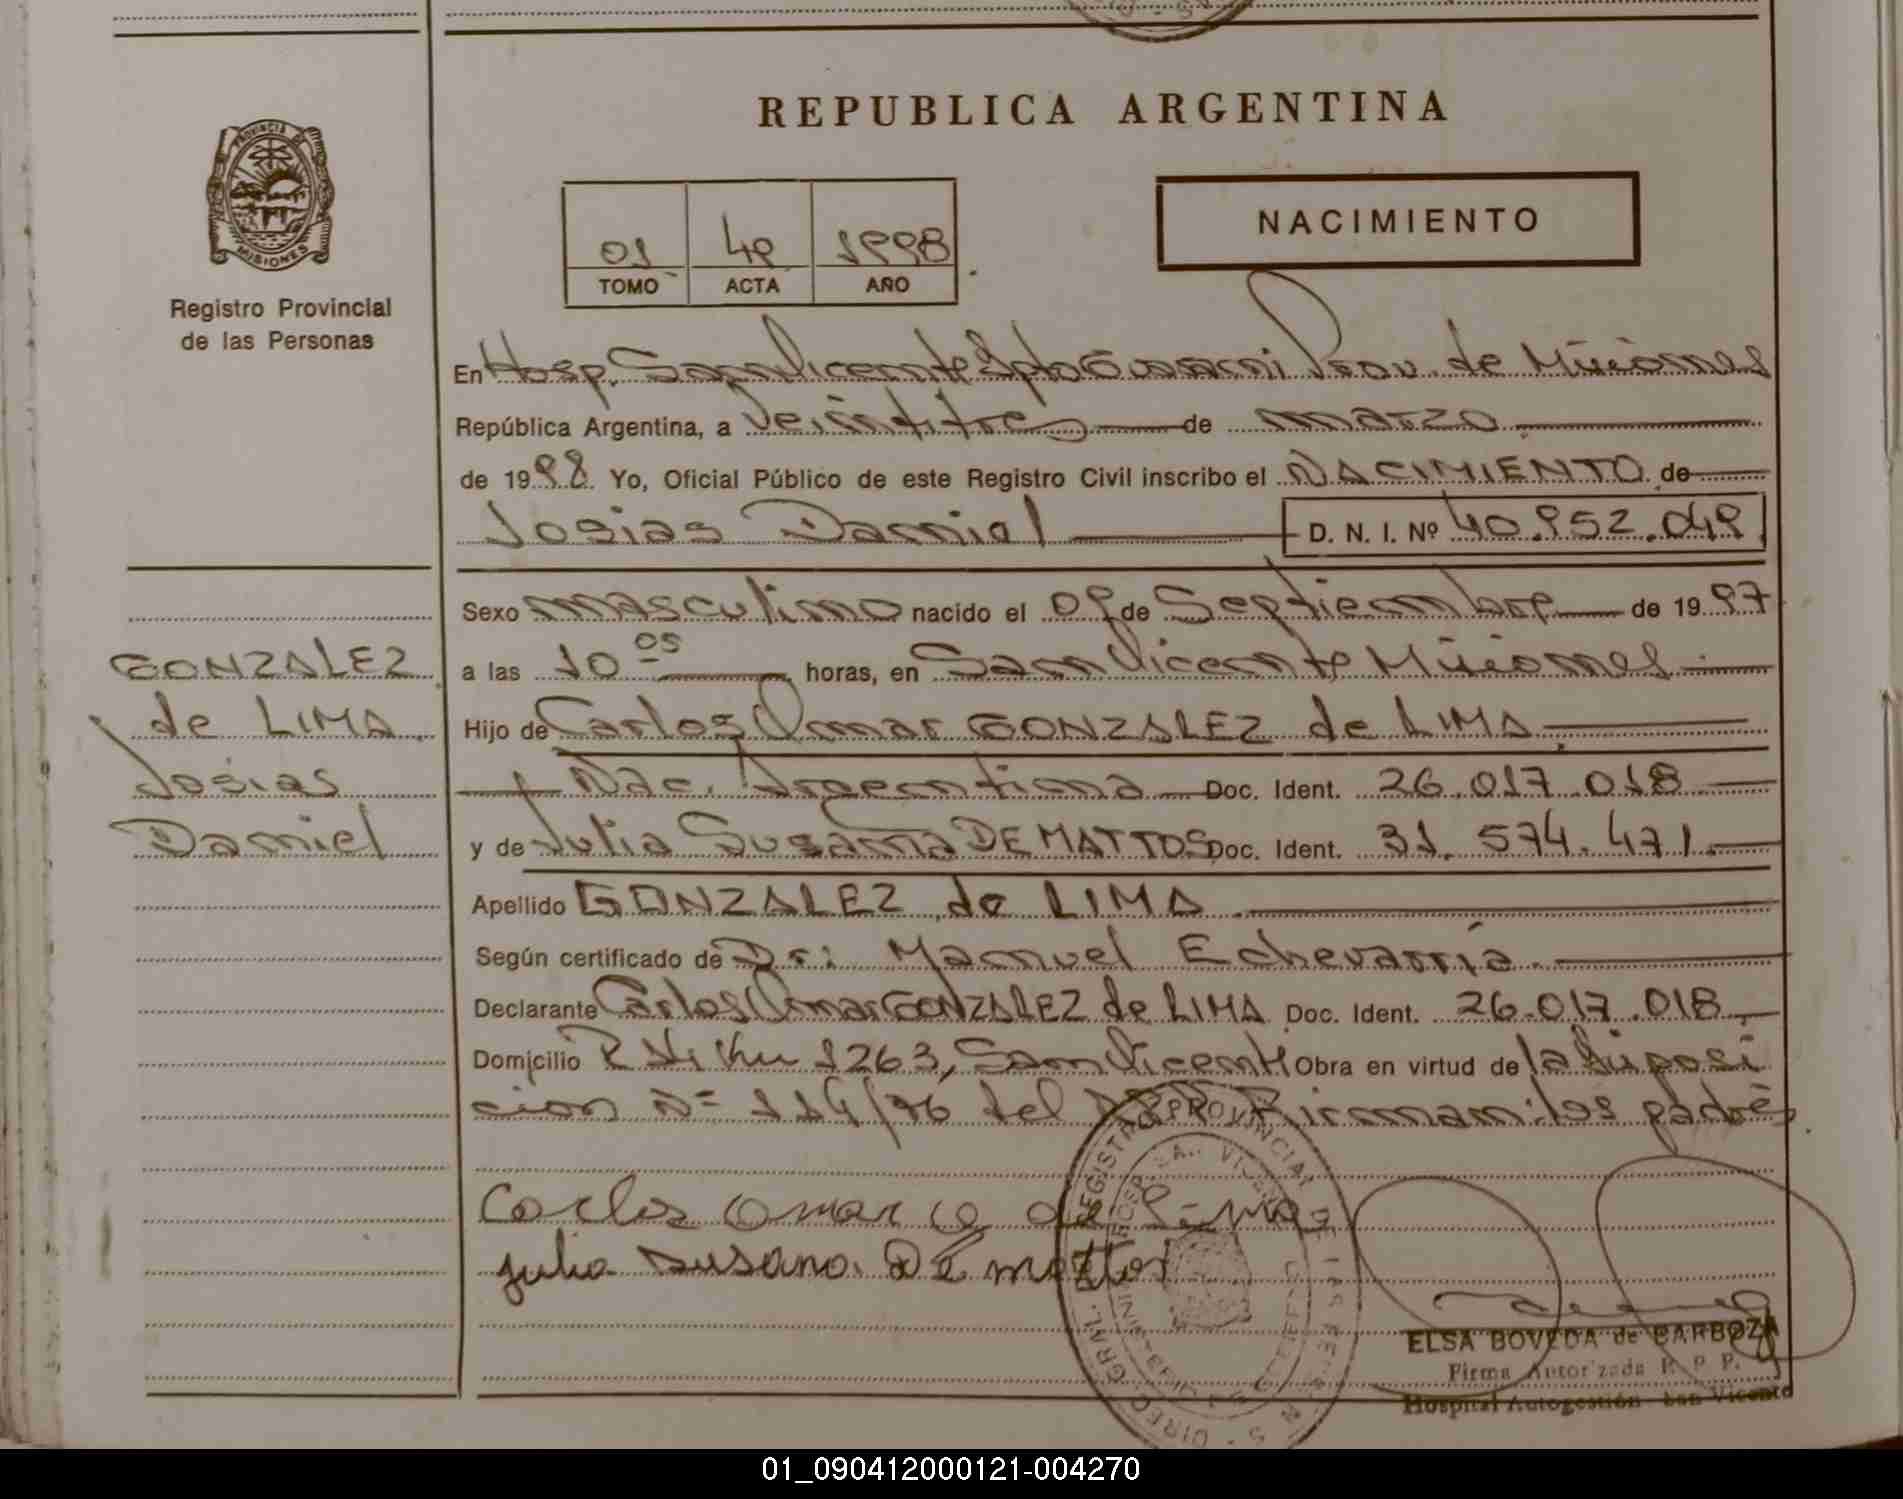 REPUBLICA ARGENTINA
PROVINCIA DE
MISIONES
Registro Provincial
de las Personas
NACIMIENTO
01 49 1998
TOMO ACTA AÑO
En Hosp. San Vicente Dpto Guarani Prov. de Misiones
República Argentina, a Veintitres de marzo
de 1998 Yo, Oficial Público de este Registro Civil inscribo el NACIMIENTO de
Josias Daniel D. N. I. Nº 40.952.049
Sexo masculino nacido el 09 de Septiembre de 1997
a las 10 05 horas, en San Vicente Misiones
Hijo de Carlos Omar GONZALEZ de LIMA
Nac. Argentina Doc. Ident. 26.017.018
y de Julia Susana DE MATTOS Doc. Ident. 31.574.471
Apellido GONZALEZ de LIMA
Según certificado de Dr: Manuel Echevarria
Declarante Carlos Omar GONZALEZ de LIMA Doc. Ident. 26.017.018
Domicilio 1263, San Vicente Obra en virtud de la Disposi
cion Nº 114/96 del Firman: los padres
GONZALEZ
de LIMA
Josias
Daniel
Carlos Omar G de Lima
julia susana De mattos
ELSA BOVEDA de BARBOZA
Firma Autorizada R. P. P.
Hospital Autogestión San Vicente
01_090412000121-004270